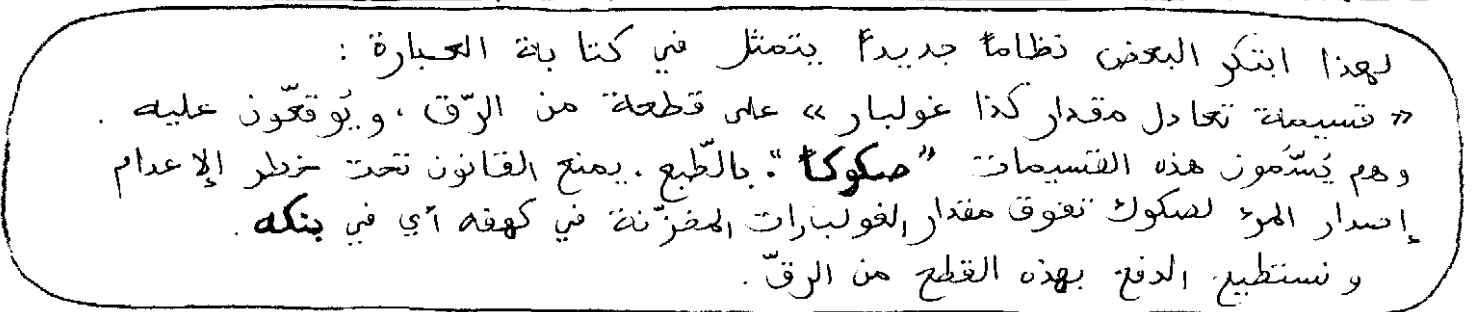 لهذا ابتكر البعض نظاماً جديداً يتمثل في كتابة العبارة :
« قسيمة تعادل مقدار كذا غولبار » على قطعة من الرّق ، و يُوقعّون عليه .
وهم يُسّمون هذه القسيمات "صكوكاً". بالطّبع ، يمنع القانون تحت خطر الإعدام
إصدار المرء لصكوك تفوق مقدار الغولبارات المخزّنة في كهفه أي في بنكه .
و نستطيع الدفع بهذه القطع من الرقّ .